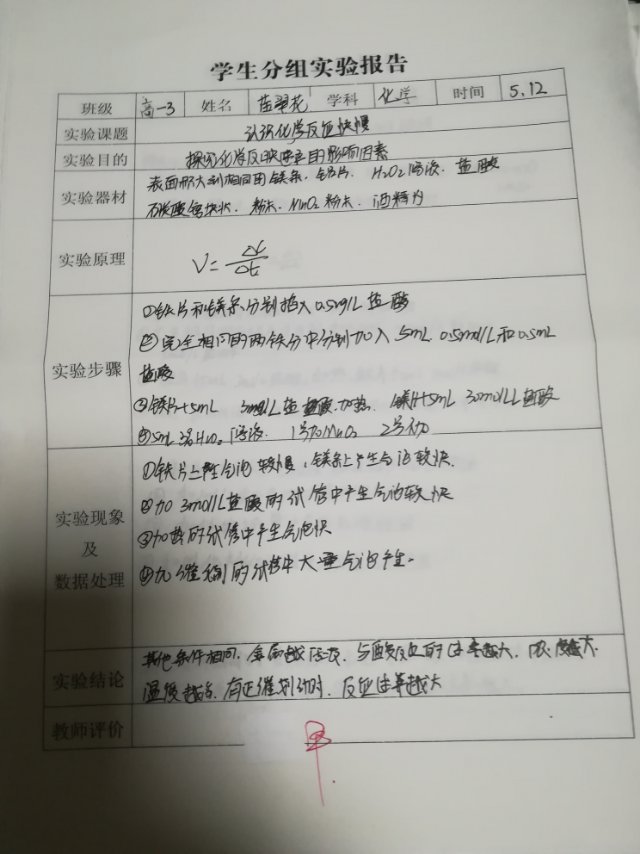 学生分组实验报告
班级 高一3 姓名 苗翠花 学科 化学 时间 5.12
实验课题 认识化学反应快慢
实验目的 探究化学反应速率的影响因素
实验器材 表面积大小相同的镁条、铁片、H2O2溶液、盐酸
石灰石块状、粉末、MnO2粉末、酒精灯
实验原理 V=Δc/Δt
实验步骤
①铁片和镁条分别插入0.5mol/L盐酸
②完全相同的两铁分中分别加入5mL 0.5mol/L和0.5mL
盐酸
③镁片+5mL 3mol/L盐酸加热 镁片+5mL 3.0mol/L盐酸
1号加MnO2 2号不加
实验现象及数据处理
①铁片上产生气泡较慢,镁条上产生气泡较快.
②加3mol/L盐酸的试管中产生气泡较快
③加热的试管中产生气泡快
④加催化剂的试管中大量气泡产生.
实验结论 其他条件相同,金属越活泼,与酸反应的速率越大,浓度越大,
温度越高,有正催化剂时,反应速率越大
教师评价